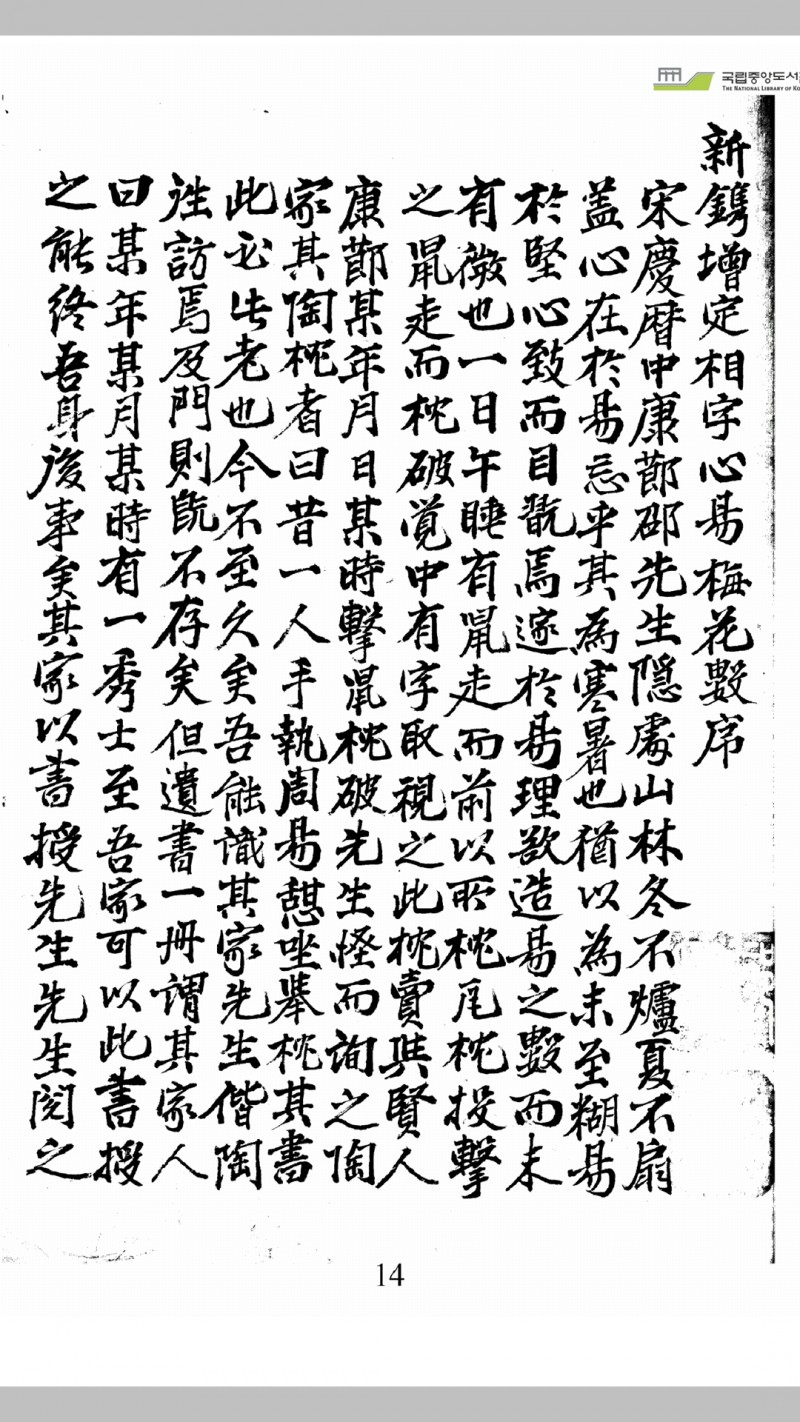 국립중앙도서
THE NATIONAL LIBRARY OF KO
新鐫增定相字心易梅花數序
宋慶曆中康節邵先生隱處山林冬不爐夏不扇
盖心在於易忘乎其為寒暑也猶以為未至糊易
於堅心致而目翫焉邃於易理欲造易之數而未
有徵也一日午睡有鼠走而前以所枕瓦枕投擊
之鼠走而枕破覺中有字取視之此枕賣與賢人
康節某年月日某時擊鼠枕破先生怪而詢之陶
家其陶枕者曰昔一人手執周易憇坐擧枕其書
此必此老也今不至久矣吾能識其家先生偕陶
往訪焉及門則旣不存矣但遺書一册謂其家人
曰某年某月某時有一秀士至吾家可以此書授
之能終吾身後事矣其家以書授先生先生閱之
14